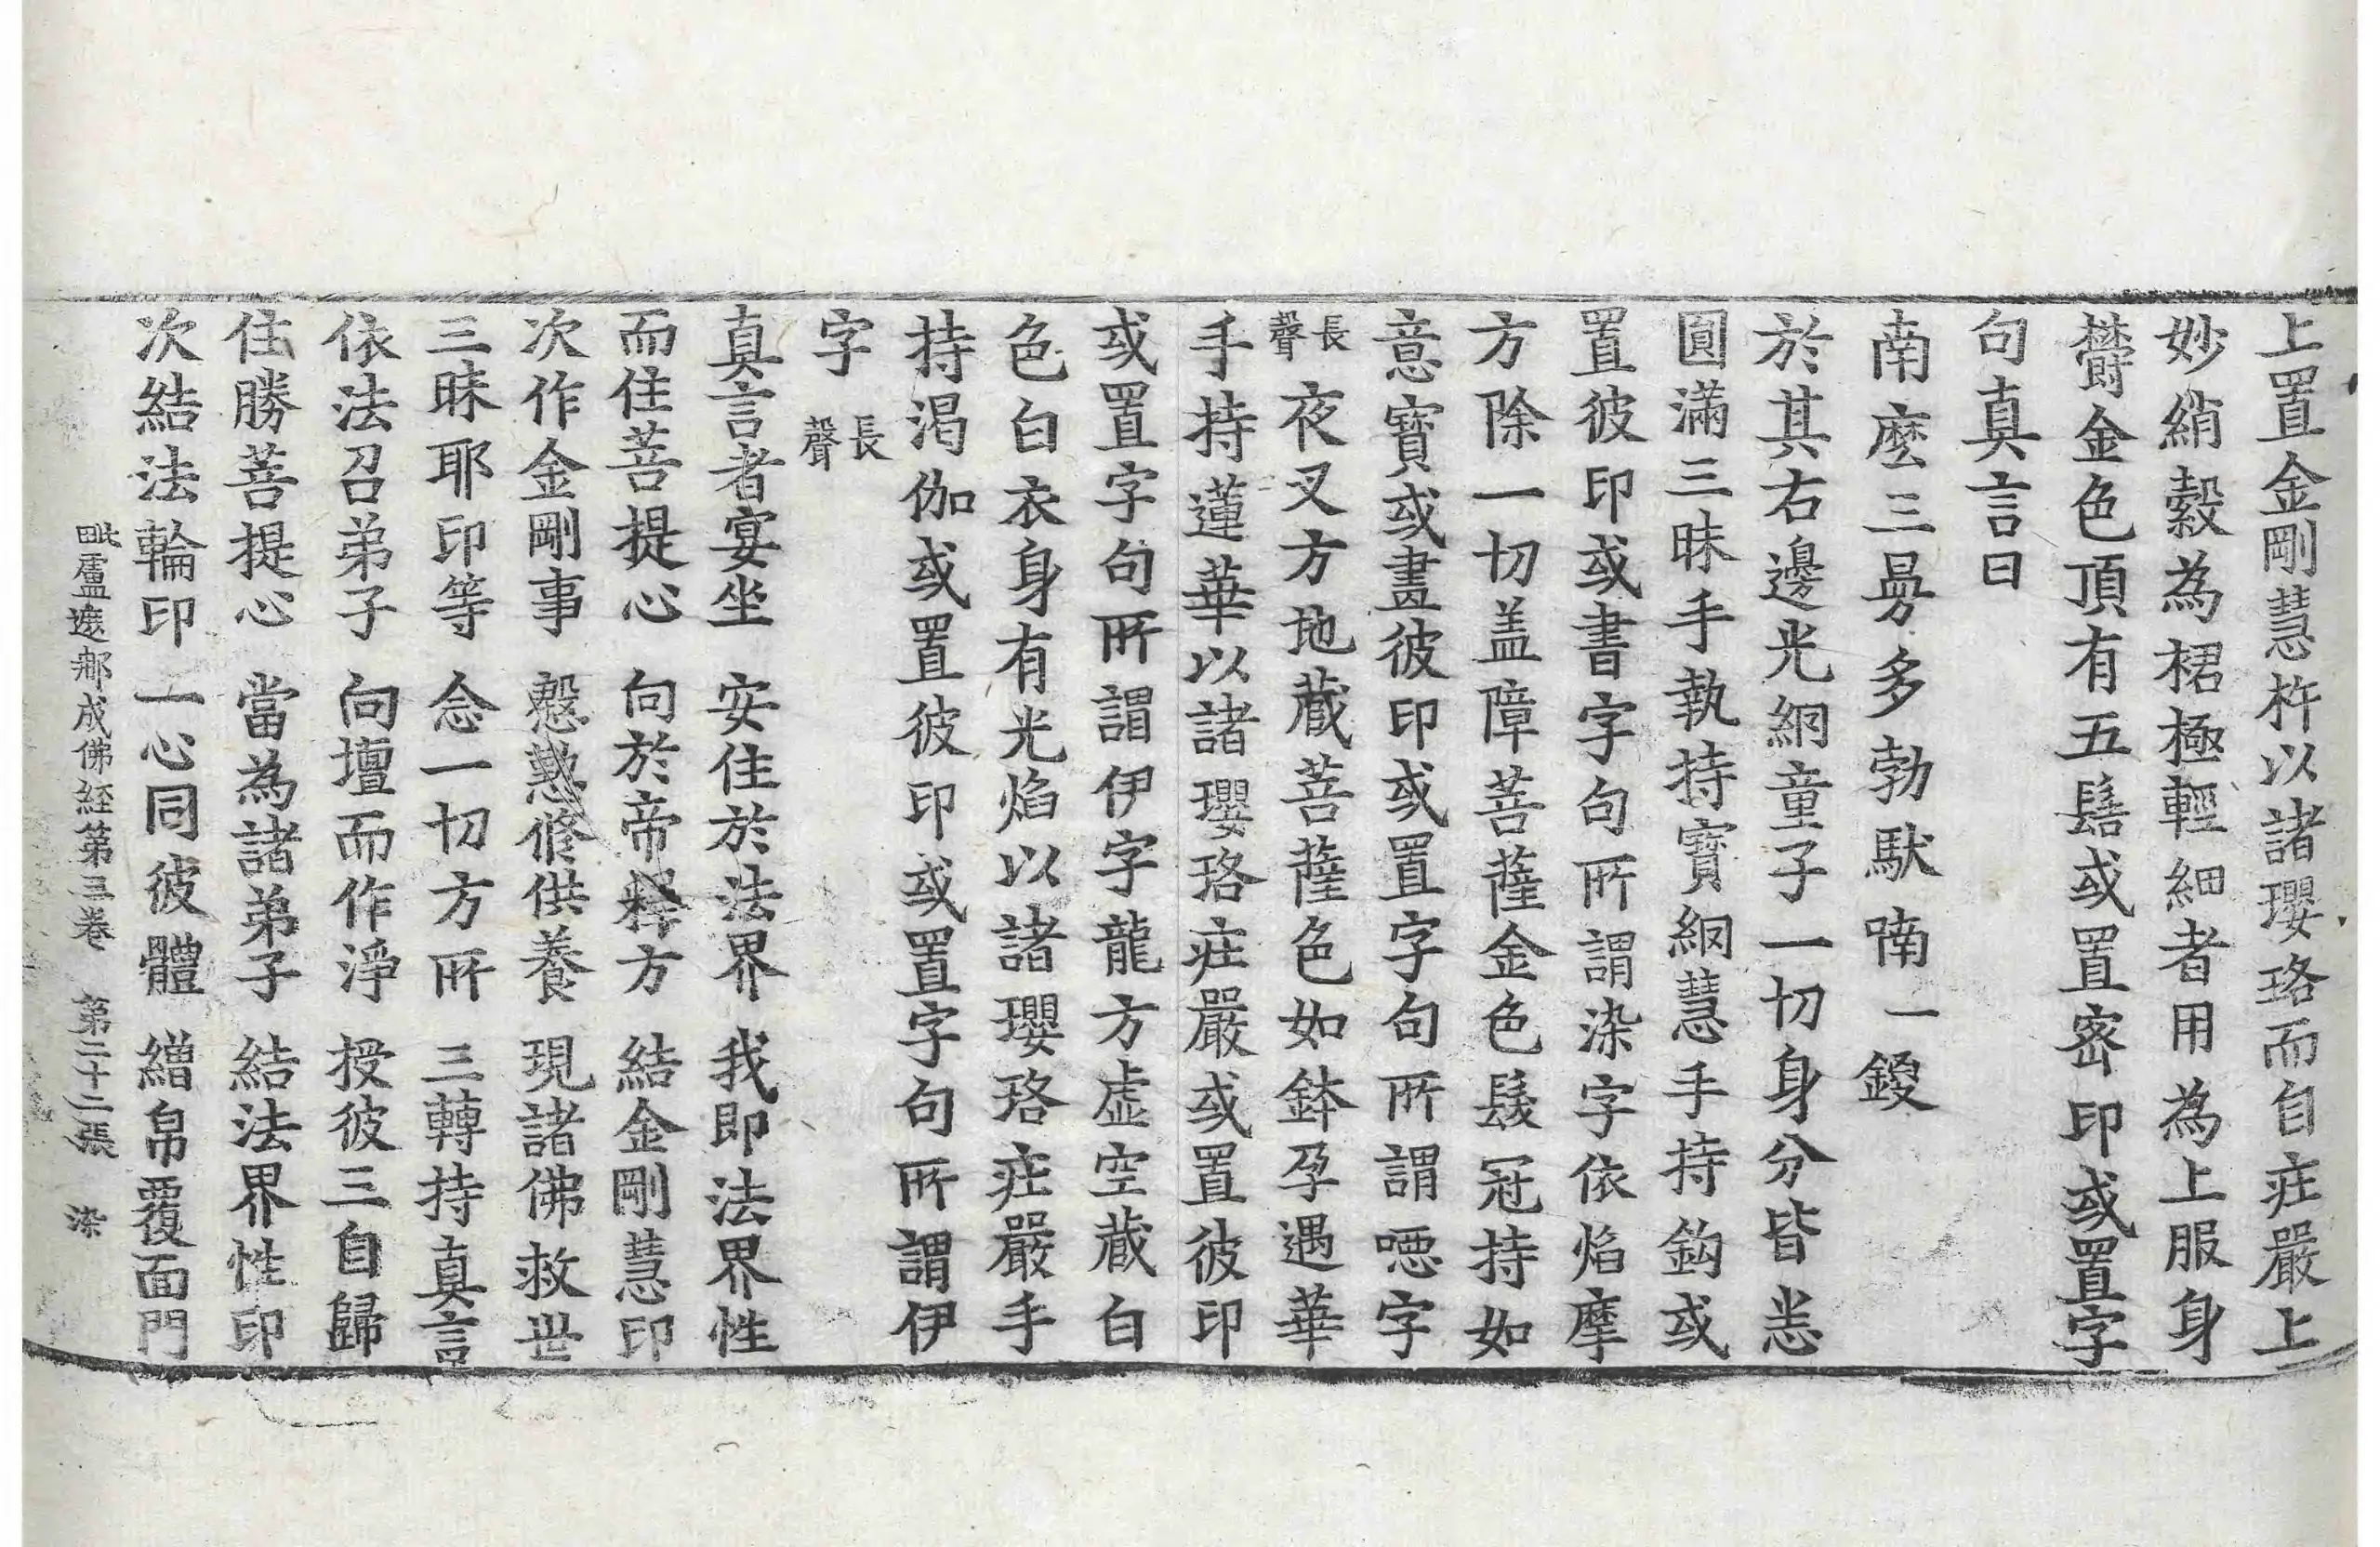 上置金剛慧杵以諸瓔珞而自疘嚴上
妙綃縠為裙極輕細者用為上服身
欝金色頂有五髻或置密印或置字
句真言曰
南麼三曼多勃馱喃一鑁
於其右邊光網童子一切身分皆悉
圓滿三昧手執持寶網慧手持鈎或
置彼印或書字句所謂染字依焰摩
方除一切盖障菩薩金色髮冠持如
意寶或畫彼印或置字句所謂噁字
長聲夜叉方地藏菩薩色如鉢孕遇華
手持蓮華以諸瓔珞疘嚴或置彼印
或置字句所謂伊字龍方虛空藏白
色白衣身有光焰以諸瓔珞疘嚴手
持渴伽或置彼印或置字句所謂伊
字長聲
真言者宴坐 安住於法界 我即法界性
而住菩提心 向於帝釋方 結金剛慧印
次作金剛事 慇懃修供養 現諸佛救世
三昧耶印等 念一切方所 三轉持真言
依法召弟子 向壇而作淨 授彼三自歸
住勝菩提心 當為諸弟子 結法界性印
次結法輪印 一心同彼體 繒帛覆面門
毗盧遮那成佛経第三卷 第二十二張 染